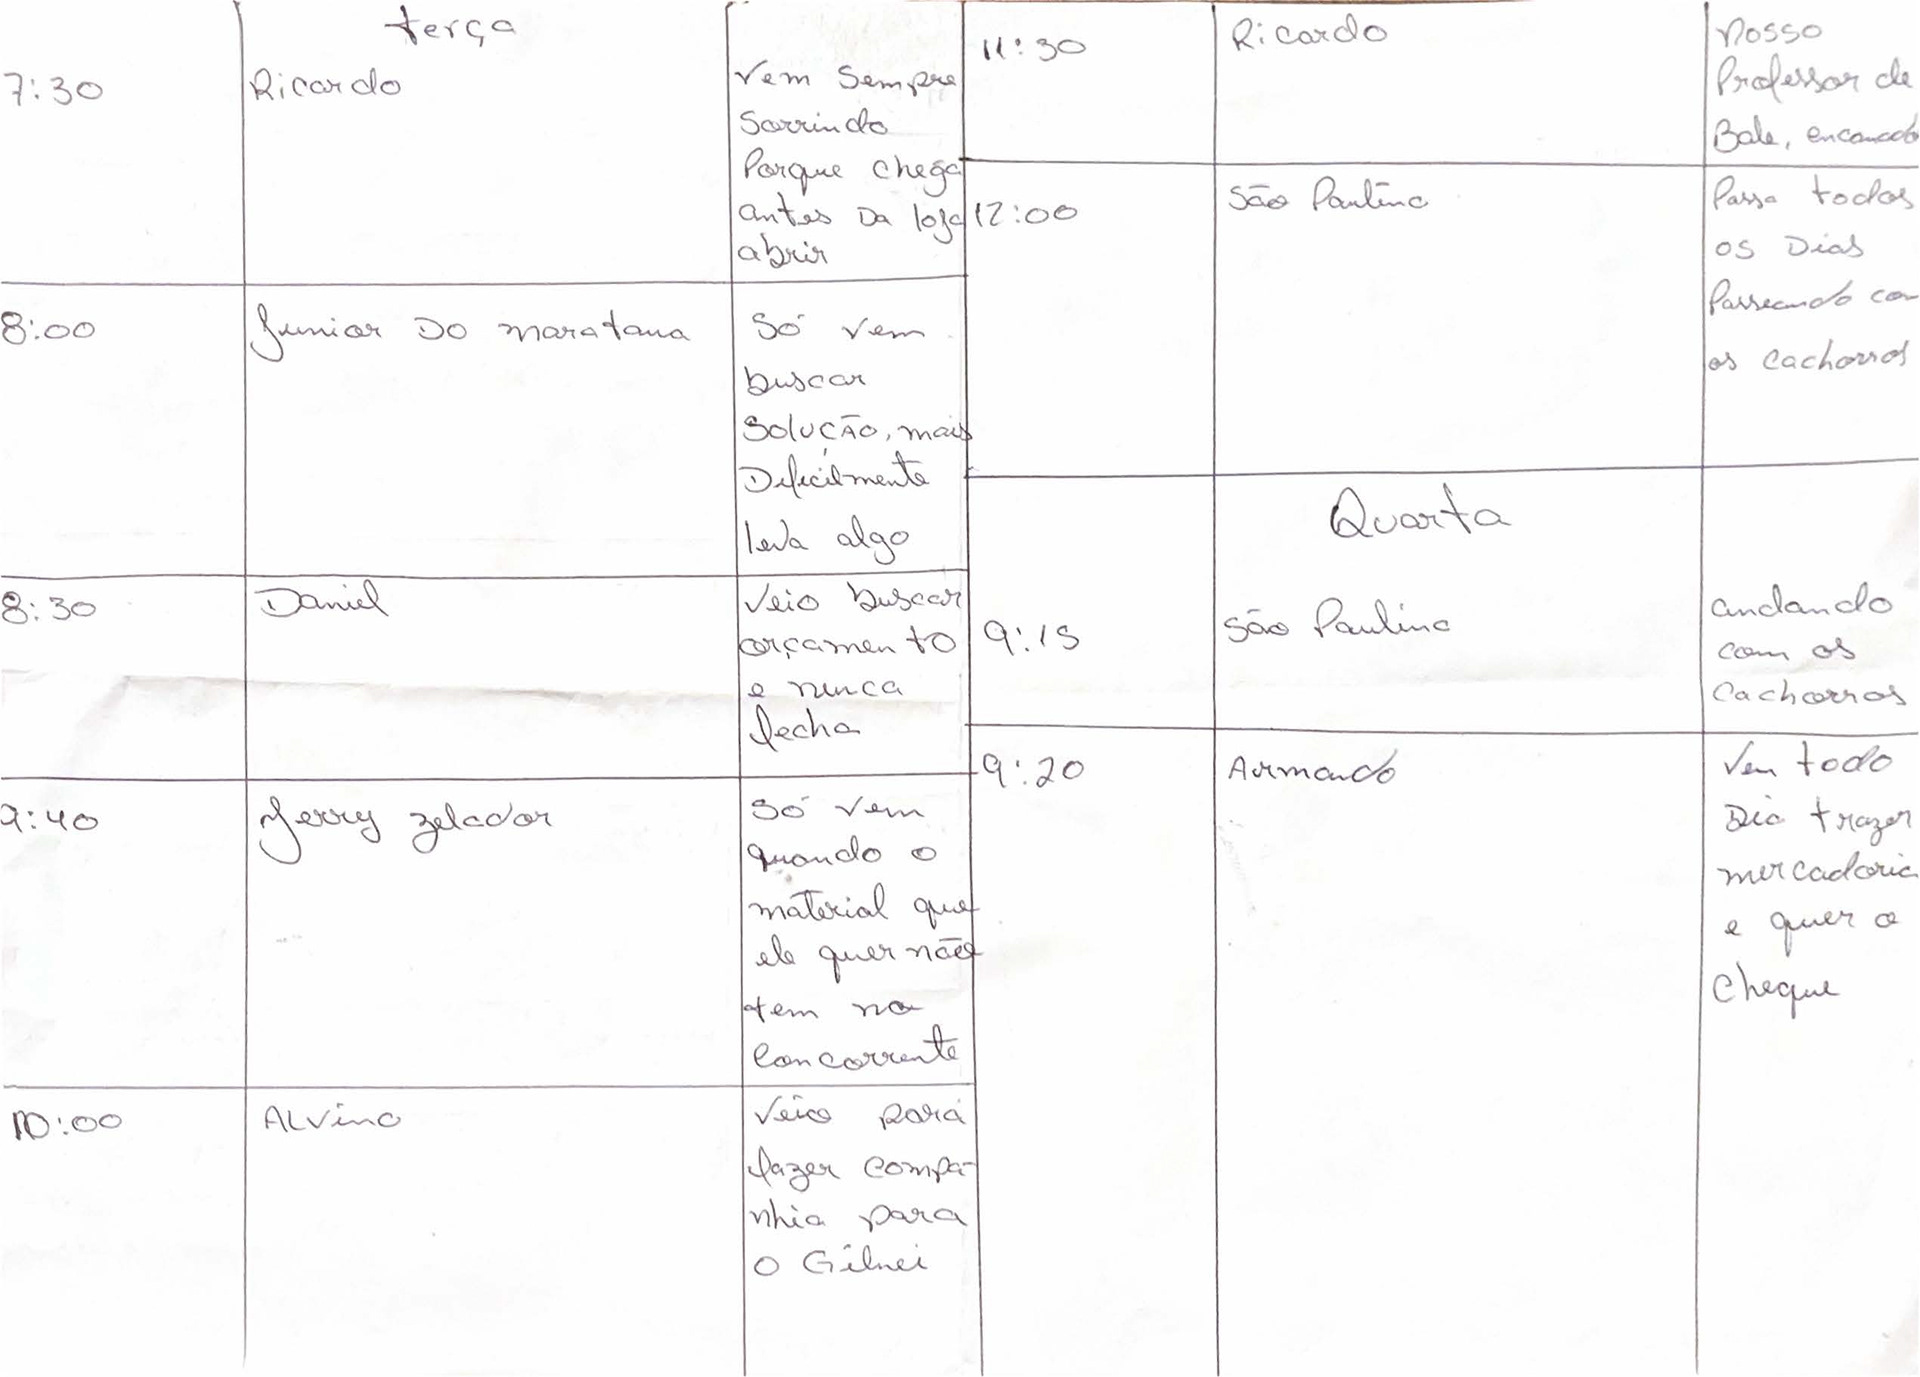 terça
7:30 Ricardo Vem Sempre
Sorrindo
Porque chega
antes Da loja
abrir
8:00 Junior Do maratana Só vem
buscar
Solução, mais
Dificilmente
leva algo
8:30 Daniel Veio buscar
orçamento
e nunca
fecha
9:40 Jerry zelador Só vem
quando o
material que
ele quer não
tem no
Concorrente
10:00 ALvino Veio para
fazer compa-
nhia para
O Gilnei
11:30 Ricardo Nosso
Professor de
Bale, encanado
12:00 São Paulino Passa todos
os Dias
Passeando com
os cachorros
Quarta
9:15 São Paulino andando
com os
Cachorros
9:20 Armando Vem todo
Dia trazer
mercadoria
e quer o
Cheque